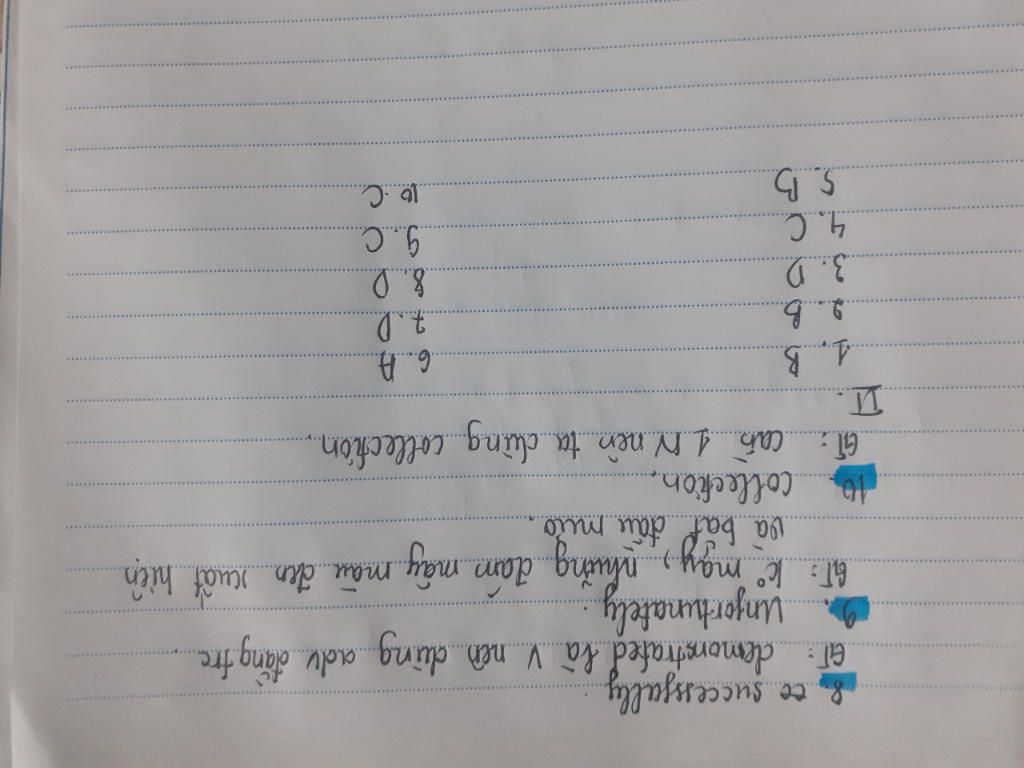 8. successfully
GT: demonstrated là V nên dùng adv đằng trc.
9. Unfortunately.
GT: k° may, những đám mây màu đen xuất hiện
và bắt đầu mưa.
10. collection.
GT: cần 1 N nên ta dùng collection.
VI.
1. B 6. A
2. B 7. D
3. D 8. D
4. C 9. C
5. B 10. C